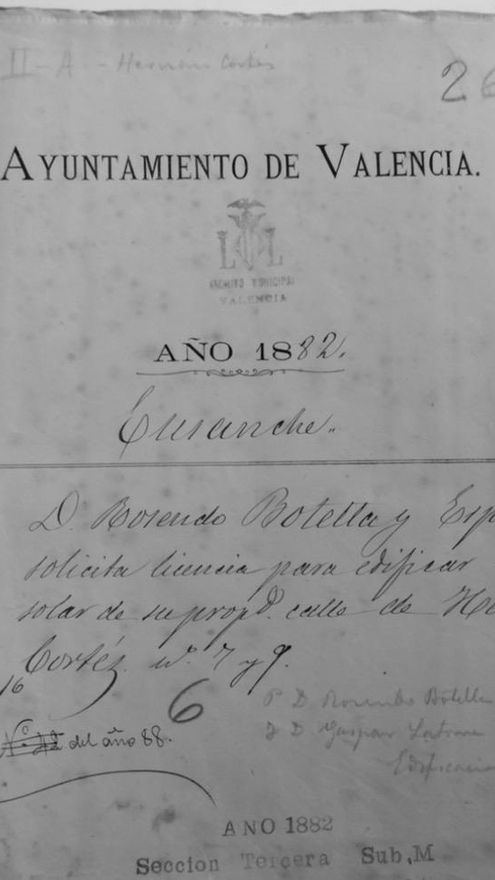 II-A - Hernán Cortés
26
AYUNTAMIENTO DE VALENCIA.
ARCHIVO MUNICIPAL
VALENCIA
AÑO 1882.
Ensanche.
D. Rosendo Botella y Esp
solicita licencia para edificar
solar de su propd. calle de He
Cortés nº. 7 y 9.
16
6
Nº 42 del año 88.
P D Rosendo Botella
D Gaspar
Edificación
ANO 1882
Seccion Tercera Sub.M